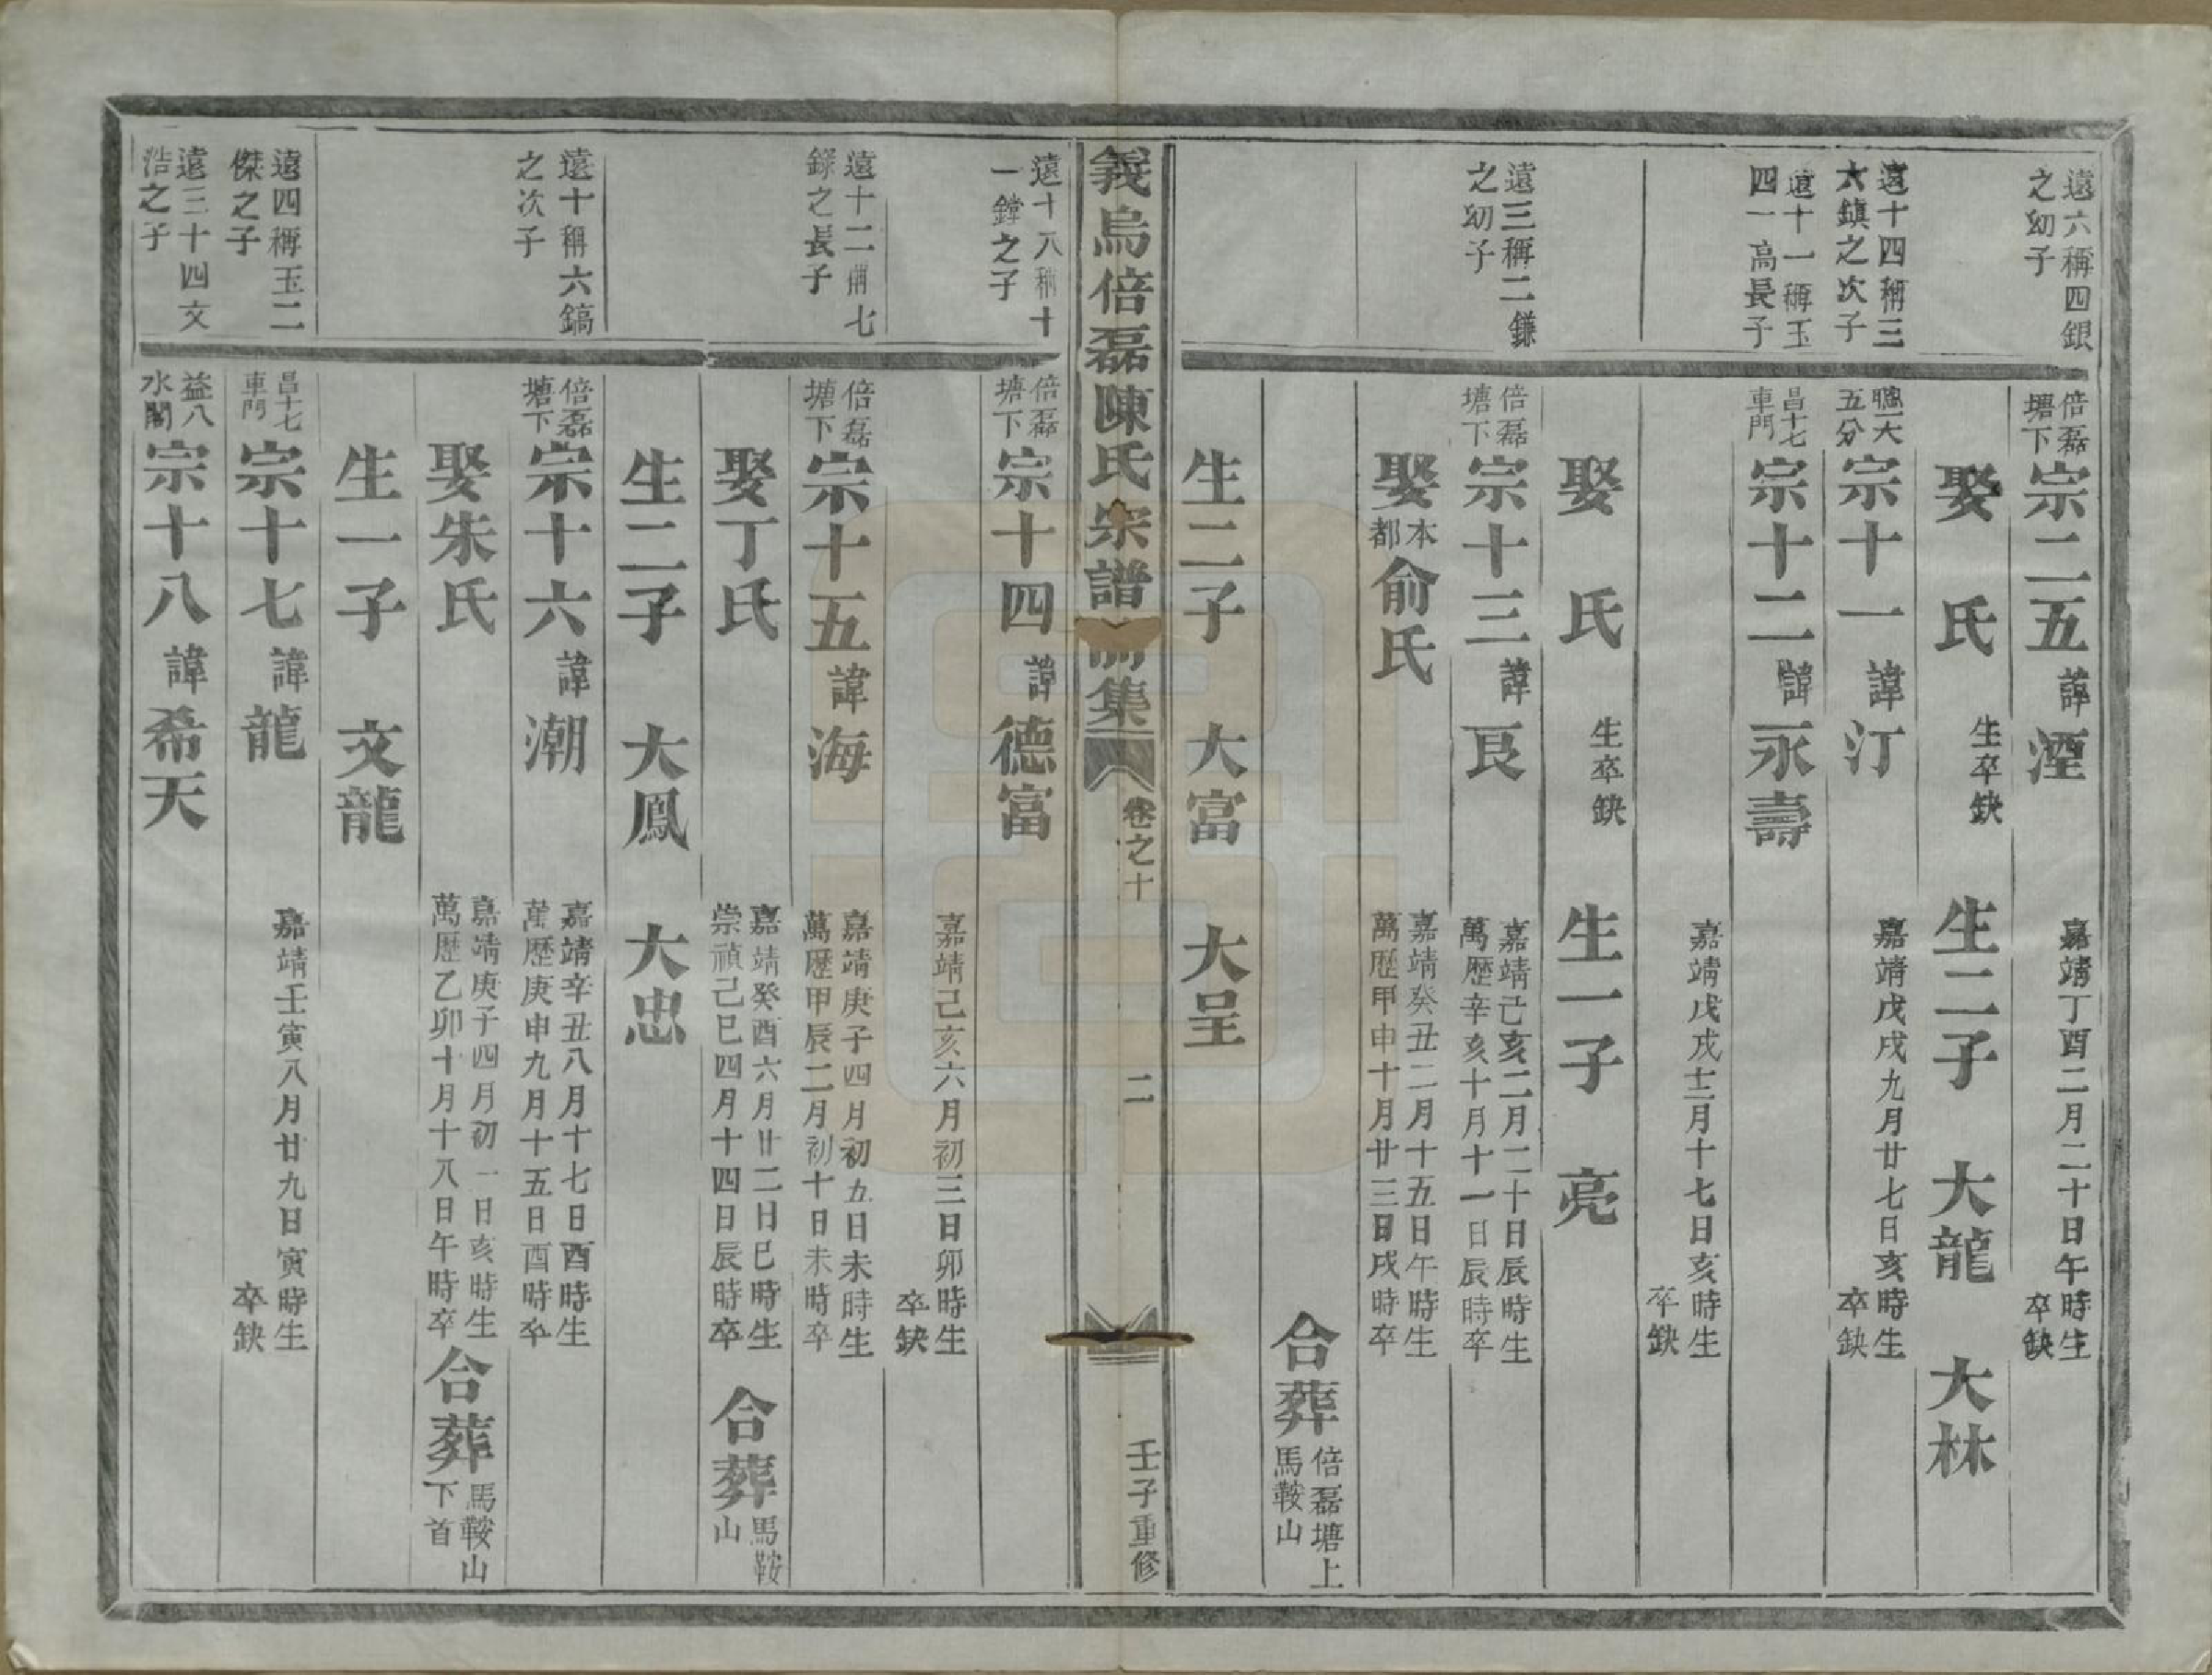 遠六稱四銀
之幼子
倍磊
塘下
宗二五 諱 湮
嘉靖丁酉二月二十日午時生
卒缺
娶 氏 生卒缺 生二子 大龍 大林
遠十四稱三
六鎮之次子
聰六
五分
宗十一 諱 汀
嘉靖戊戌九月廿七日亥時生
卒缺
遠十一稱玉
四一高長子
昌十七
車門
宗十二 諱 永壽
嘉靖戊戌十二月十七日亥時生
卒缺
娶 氏 生卒缺 生一子 亮
遠三稱二鎌
之幼子
倍磊
塘下
宗十三 諱 艮
嘉靖己亥二月二十日辰時生
萬歷辛亥十月十一日辰時卒
娶 本都 俞氏
嘉靖癸丑二月十五日午時生
萬歷甲申十月廿三日戌時卒
合葬 倍磊塘上
馬鞍山
生二子 大富 大呈
義烏倍磊陳氏宗譜前集 卷之十 二 壬子重修
遠十八稱十
一鏜之子
倍磊
塘下
宗十四 諱 德富
嘉靖己亥六月初三日卯時生
卒缺
遠十二稱七
錄之長子
倍磊
塘下
宗十五 諱 海
嘉靖庚子四月初五日未時生
萬歷甲辰二月初十日未時卒
娶丁氏
嘉靖癸酉六月廿二日巳時生
崇禎己巳四月十四日辰時卒
合葬 馬鞍
山
生二子 大鳳 大忠
遠十稱六鎬
之次子
倍磊
塘下
宗十六 諱 潮
嘉靖辛丑八月十七日酉時生
萬歷庚申九月十五日酉時卒
娶朱氏
嘉靖庚子四月初一日亥時生
萬歷乙卯十月十八日午時卒
合葬 馬鞍山
下首
生一子 文龍
遠四稱玉二
傑之子
昌十七
車門
宗十七 諱 龍
嘉靖壬寅八月廿九日寅時生
卒缺
遠三十四文
浩之子
益八
水閣
宗十八 諱 希天